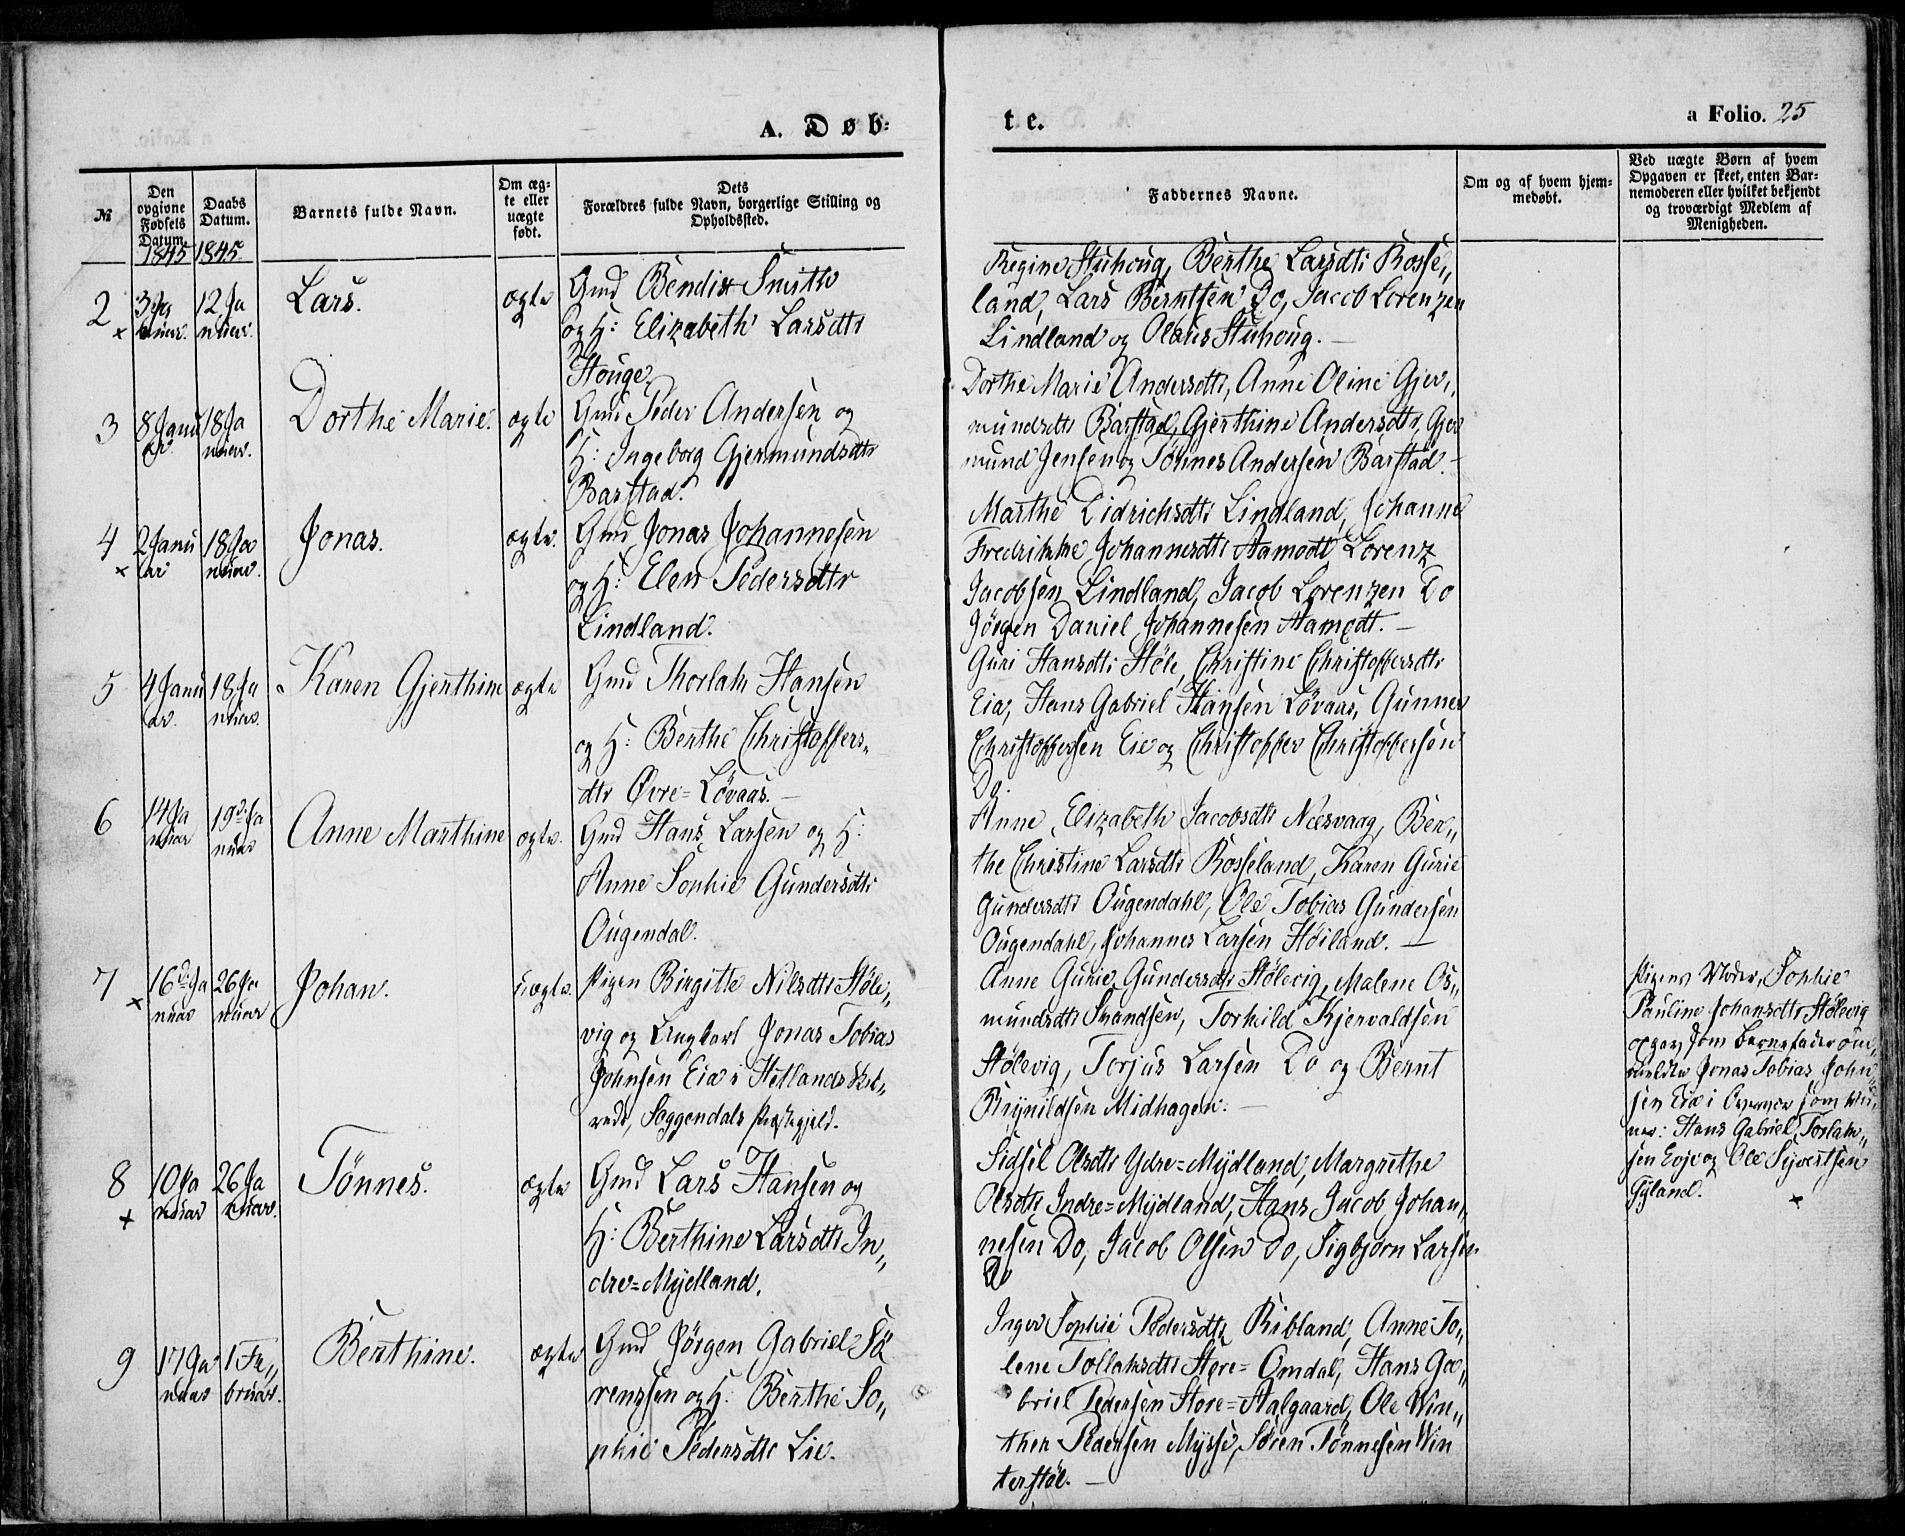 A. Døb-
te.
a Folio. 25
№
Den opgivne Fødsels Datum.
Daabs Datum.
Barnets fulde Navn.
Om ægte eller uægte født.
Dets Forældres fulde Navn, borgerlige Stilling og Opholdssted.
Faddernes Navne.
Om og af hvem hjemmedøbt.
Ved uægte Børn af hvem
Opgaven er skeet, enten Bar-
nemoderen eller hvilket bekjendt
og troværdigt Medlem af
Menigheden.
1845 1845.
2 3 Ja 12 Ja Lars. ægte Gmd Bendix Smith
nuar. nuar. og H: Elizabeth Larsdtr
Houge
Regine Stuhoug, Berthe Larsdtr Rosse„
land, Lars Berntsen Do, Jacob Lorenzen
Lindland og Olaus Stuhoug. —
3 8 Janu 18 Ja Dorthe Marie. ægte Gmd Peder Andersen og
ar nuar. H: Ingeborg Gjermundsdtr
Barstad.
Dorthe Marie Andersdtr, Anne Oline Gjer„
mundsdtr Barstad, Gjerthine Andersdtr, Gjer
mund Jensen og Tønnes Andersen Barstad. –
4 2 Janu 18 Ja Jonas. ægte. Gmd Jonas Johannesen
ar nuar. og H: Elen Pedersdtr
Lindland.
Marthe Didrichsdtr Lindland, Johanne
Fredrikke Johannesdtr Aamodt Lorenz
Jacobsen Lindland, Jacob Lorenzen Do
Jörgen Daniel Johannesen Aamodt. —
5 4 Janu 18 Ja Karen Gjerthine ægte Gmd Thorlak Hansen
ar. nuar. og H: Berthe Christoffers„
dtr Øvre=Løvaas. —
Guri Hansdtr Støle, Christine Christoffersdtr
Eia, Hans Gabriel Hansen Løvaas, Gunner
Christoffersen Eie og Christoffer Christoffersen
Do.
6 14 Ja 19de Ja Anne Marthine ægte. Gmd Hans Larsen og H:
nuar nuar Anne Sophie Gundersdtr
Ougendal.
Anne Elizabeth Jacobsdtr Næsvaag, Ber„
the Christine Larsdtr Rosseland, Karen Gurie
Gundersdtr Ougendahl, Ole Tobias Gundersen
Ougendahl, Johannes Larsen Høiland. —
7 16de Ja 26 Ja Johan. uægte. Pigen Birgitte Nilsdtr Støle„
nuar nuar vig og Ungkarl Jonas Tobias
Johnsen Eia i Hetlands
Soggendals Præstegjeld.
Anne Gurie Gundersdtr Stølevig, Malene Os„
mundsdtr Svandsen, Torkild Kjervaldsen
Stølevig, Torjus Larsen Do og Bernt
Brynildsen Midhagen. —
Pigens Moder, Sophie
Pauline Johansdtr Stølevig
opgav som Barnefader om„
meldte Jonas Tobias John„
sen Eia i som Vid„
ner: Hans Gabriel Torlak„
sen Evje og Ole Syvertsen
Gyland.
8 10 Ja 26 Ja Tönnes. ægte Gmd Lars Hansen og
nuar nuar. H: Berthine Larsdtr In„
dre=Mydland.
Sidsel Olsdtr Ydre=Mydland, Margrethe
Olsdtr Indre=Mydland, Hans Jacob Johan„
nesen Do, Jacob Olsen Do, Sigbjørn Larsen
Do
9 17 Ja 1 Fe„ Berthine. ægte Gmd Jörgen Gabriel Sö
nuar bruar. rensen og H: Berthe So„
phie Pedersdtr Lie.
Inger Sophie Pedersdtr Ribland, Anne To„
lene Tollaksdtr Store=Omdal, Hans Ga„
briel Pedersen Store=Aalgaard, Ole Win„
ther Pedersen Mysse, Sören Tönnesen Win
terstöl. —